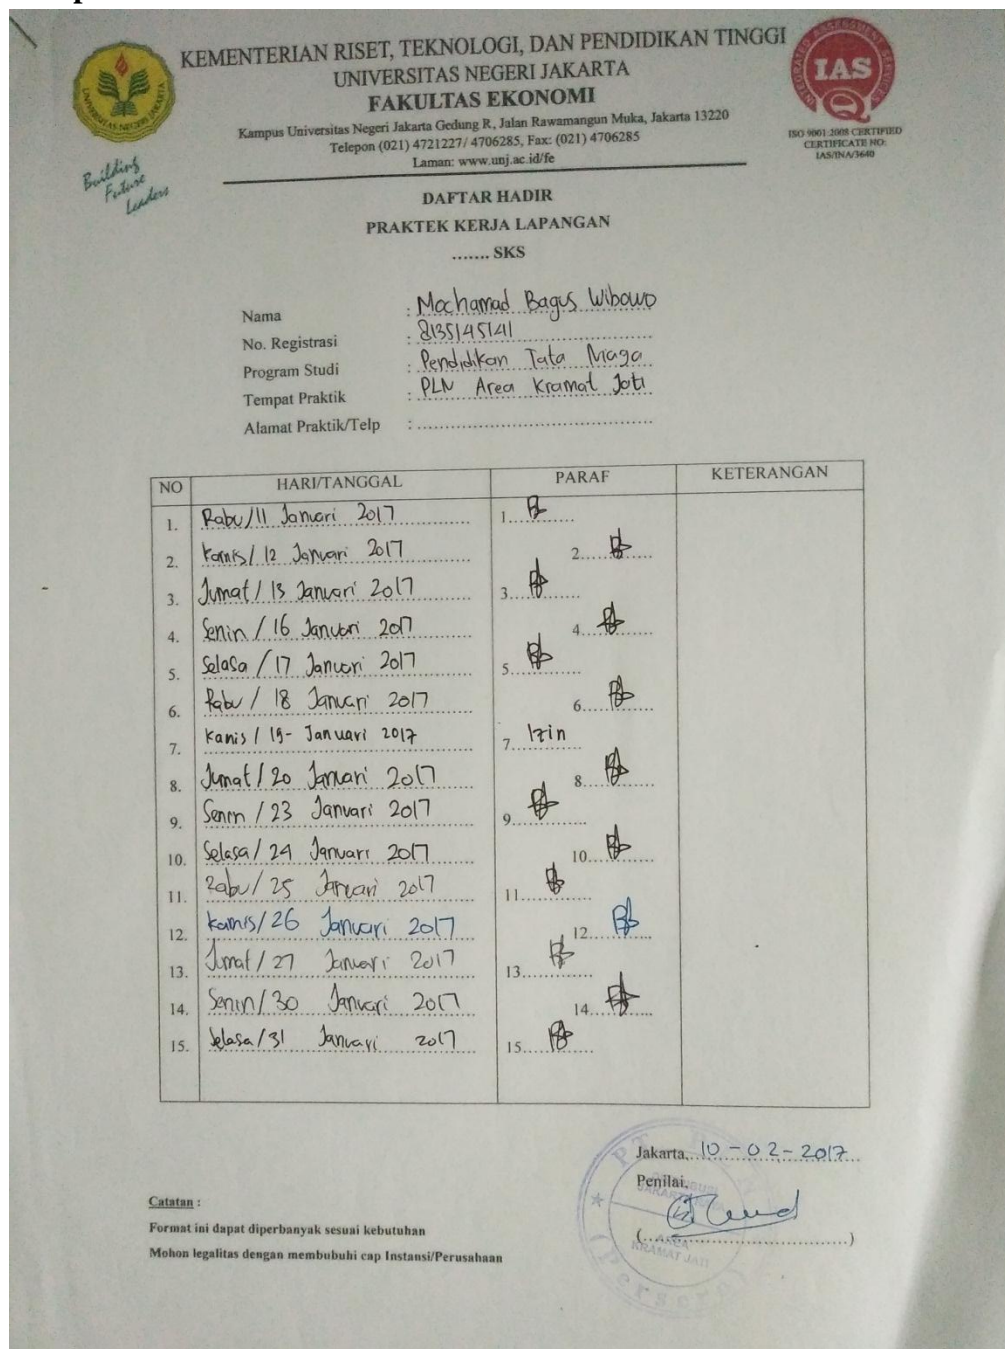 KEMENTERIAN RISET, TEKNOLOGI, DAN PENDIDIKAN TINGGI
UNIVERSITAS NEGERI JAKARTA
FAKULTAS EKONOMI
Kampus Universitas Negeri Jakarta Gedung R, Jalan Rawamangun Muka, Jakarta 13220
Telepon (021) 4721227/ 4706285, Fax: (021) 4706285
Laman: www.unj.ac.id/fe
Building
Future
Leaders
IAS
ISO 9001:2008 CERTIFIED
CERTIFICATE NO:
IAS/INA/3640
DAFTAR HADIR
PRAKTEK KERJA LAPANGAN
....... SKS
Nama : Mochamad Bagus Wibowo
No. Registrasi : 8135145141
Program Studi : Pendidikan Tata Niaga
Tempat Praktik : PLN Area Kramat Jati
Alamat Praktik/Telp :
NO HARI/TANGGAL PARAF KETERANGAN
1. Rabu/11 Januari 2017 1.
2. Kamis/ 12 Januari 2017 2.
3. Jumat / 13 Januari 2017 3.
4. Senin / 16 Januari 2017 4.
5. Selasa / 17 Januari 2017 5.
6. Rabu / 18 Januari 2017 6.
7. Kamis / 19- Januari 2017 7. Izin
8. Jumat / 20 Januari 2017 8.
9. Senin / 23 Januari 2017 9.
10. Selasa / 24 Januari 2017 10.
11. Rabu / 25 Januari 2017 11.
12. Kamis/26 Januari 2017 12.
13. Jumat / 27 Januari 2017 13.
14. Senin / 30 Januari 2017 14.
15. Selasa /31 Januari 2017 15.
Jakarta, 10 - 02 - 2017
Penilai,
Catatan :
Format ini dapat diperbanyak sesuai kebutuhan
Mohon legalitas dengan membubuhi cap Instansi/Perusahaan
AREA
KRAMAT JATI